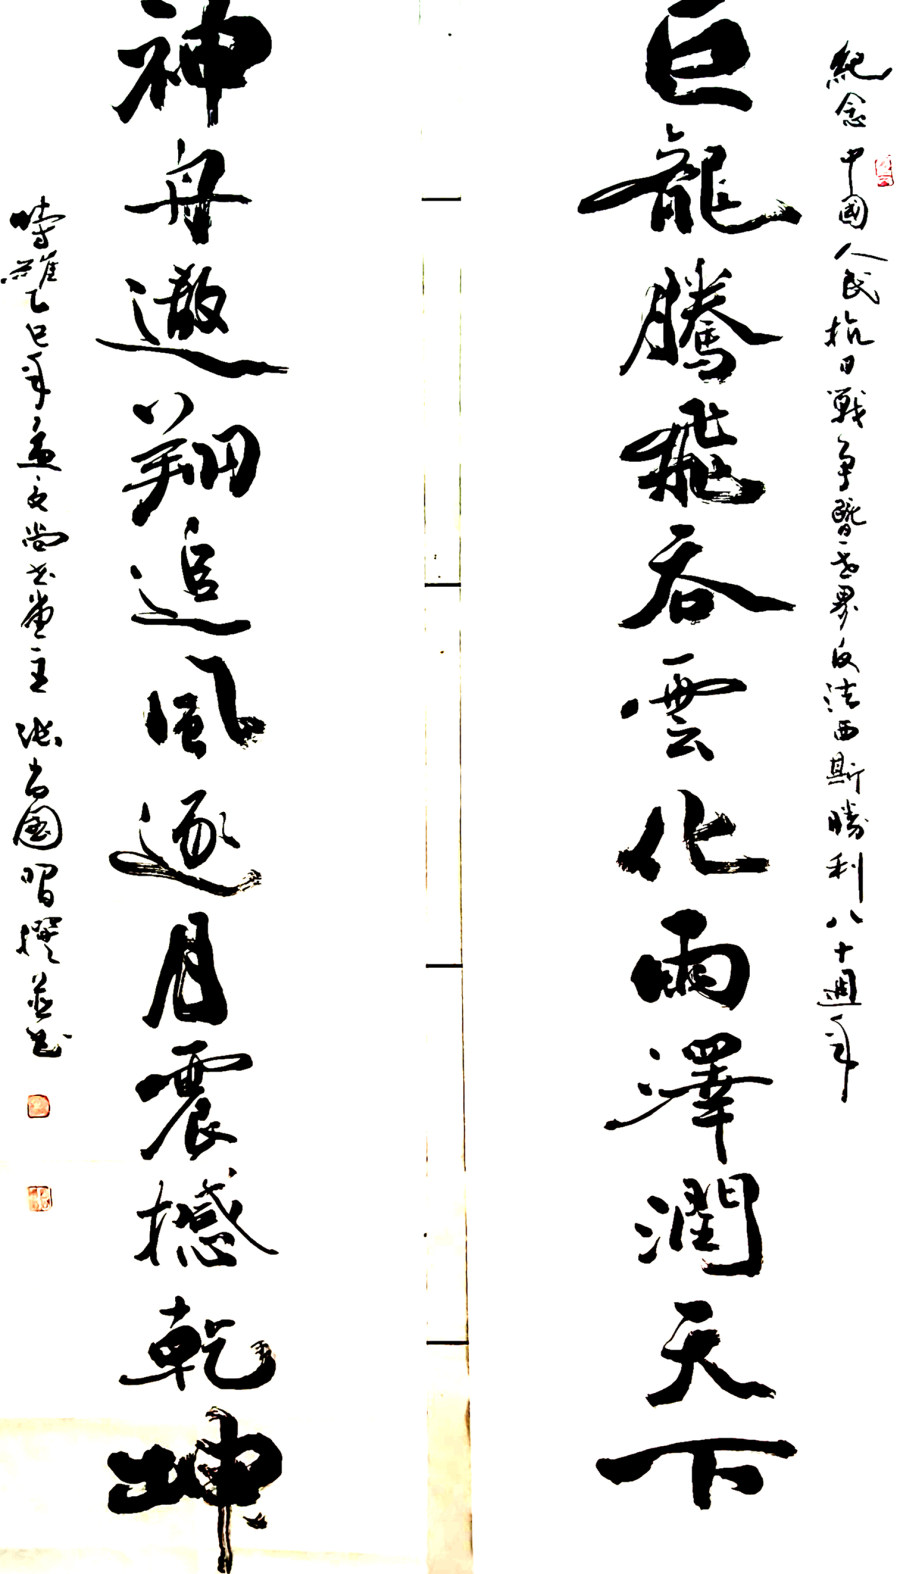 紀念中國人民抗日戰爭暨世界反法西斯勝利八十週年
巨龍騰飛吞雲化雨澤潤天下
神舟遨翔追風逐月震撼乾坤
時維乙巳年孟文尚書堂主張尚國習撰並書